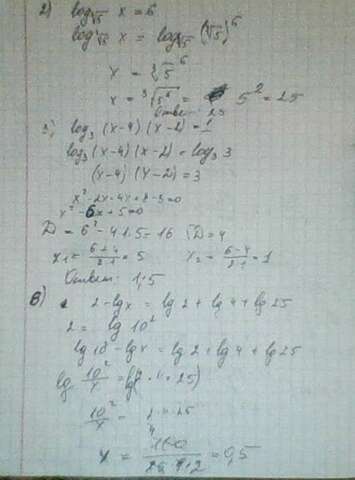 2) log ∛5 x = 6
log ∛5 x = log ∛5 (∛5)^6
x = ∛5^6
x = ∛5^6 = 5^2 = 25
Ответ: 25
3) log_3 (x-4)(x-2) = 1
log_3 (x-4)(x-2) = log_3 3
(x-4)(x-2) = 3
x^2-2x-4x+8-3=0
x^2-6x+5=0
D = 6^2-4·1·5=16 √D=4
x_1 = (6+4)/(2·1) = 5 x_2 = (6-4)/(2·1) = 1
Ответ: 1; 5
в) 2-lgx = lg2+lg4+lg25
2 = lg 10^2
lg10^2-lgx = lg2+lg4+lg25
lg 10^2/x = lg(2·4·25)
10^2/x = 2·4·25
x = 100/(25·4·2) = 0,5